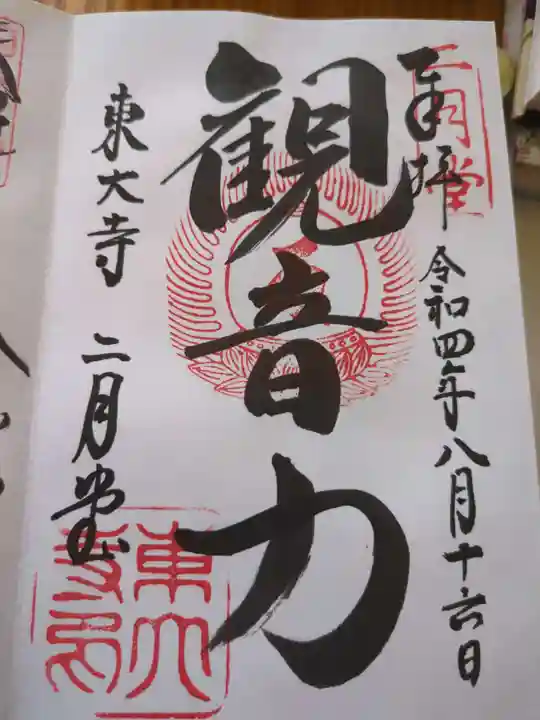 二月堂
奉拝 令和四年八月十六日
観音力
東大寺 二月堂
東大
寺印